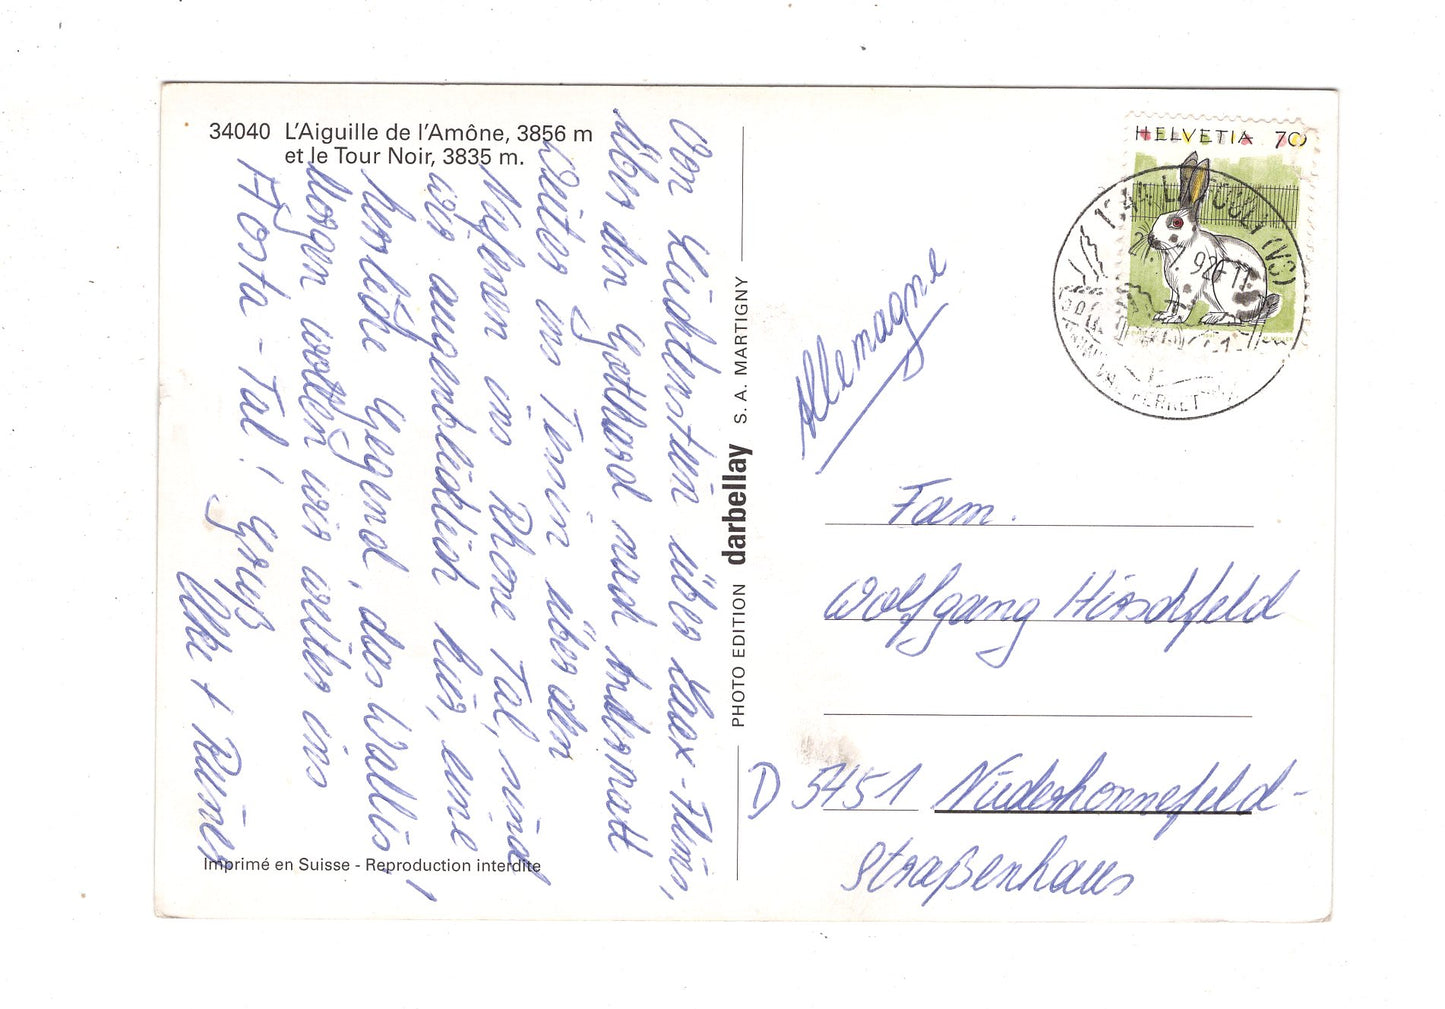 34040 L'Aiguille de l'Amône, 3856 m
et le Tour Noir, 3835 m.
Von Lichtenstein über Laax-Flims,
über den Gotthard nach Andermatt
weiter ins Tessin über den
Nufenen ins Rhone Tal, sind
wir augenblicklich hier, eine
herrliche Gegend, das Wallis!
Morgen wollen wir weiter ins
Aosta-Tal! Gruß
+ Rainer
Imprimé en Suisse - Reproduction interdite
PHOTO EDITION darbellay S. A. MARTIGNY
HELVETIA 70
LA FOULY (VS)
92
Allemagne
Fam.
Wolfgang Hirschfeld
D 5451 Niederhonnefeld-
Straßenhaus